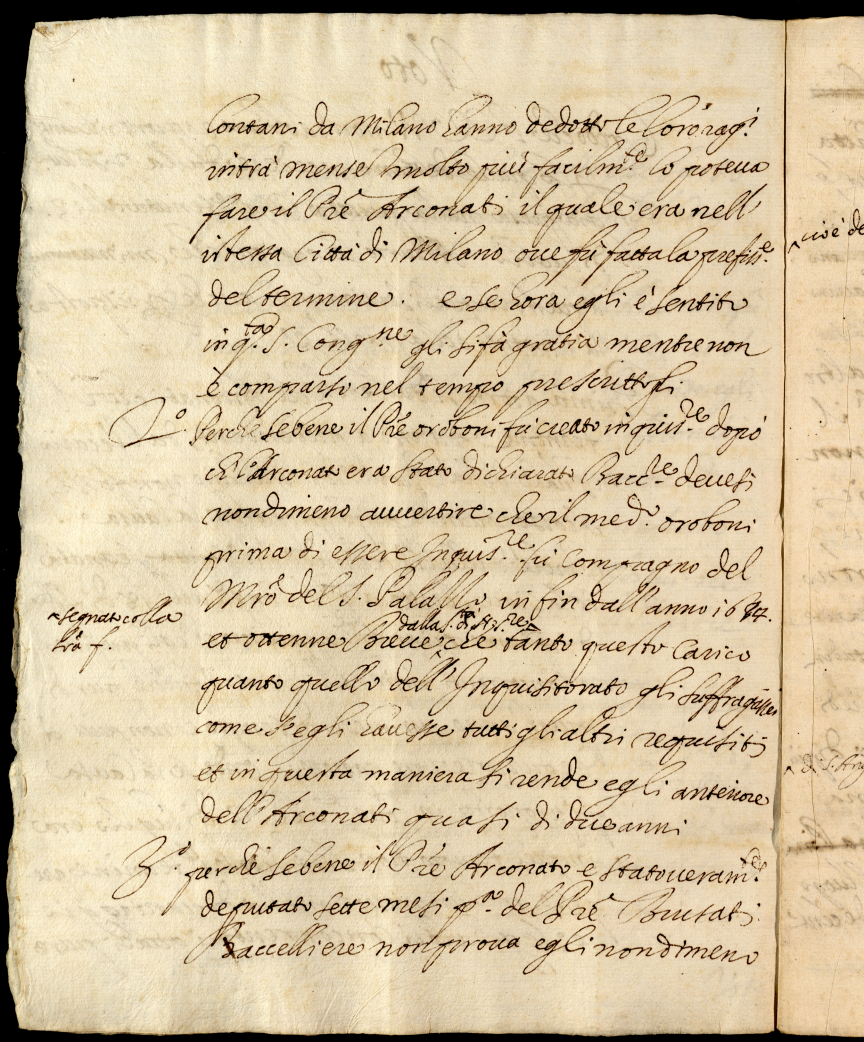 lontani da Milano hanno dedotto le loro rag.i
intra mense molto più facilm.te lo poteua
fare il Pre Arconati il quale era nell'
istessa Città di Milano oue fù fatta la prefiss.e
del termine. e se hora egli è sentito
in q.ta S. Cong.ne gli si fà gratia mentre non
è comparso nel tempo prescrittogli
2.o Perche se bene il Pre Oroboni fù creato inquis.re dopò
ch' l'Arconato era stato dichiarato Bacc.re deuesi
nondimeno auuertire che il med.o Oroboni
prima di essere Inquis.re fù Compagno del
Mrõ del S. Palazzo in fin dall'anno
^segnato colla
lrã f.
et ottenne Breue ^ che tanto questo Carico
quanto quello dell'Inquisitorato gli suffragasse
come s'egli hauesse tutti gli altri requisiti
et in questa maniera si rende egli anteriore
dell'Arconati quasi di due anni
3.o perche se bene il Pre Arconato e stato ueram.te
deputato sette mesi p.a del Pre
Baccelliere non proua egli nondimeno
^cioè de